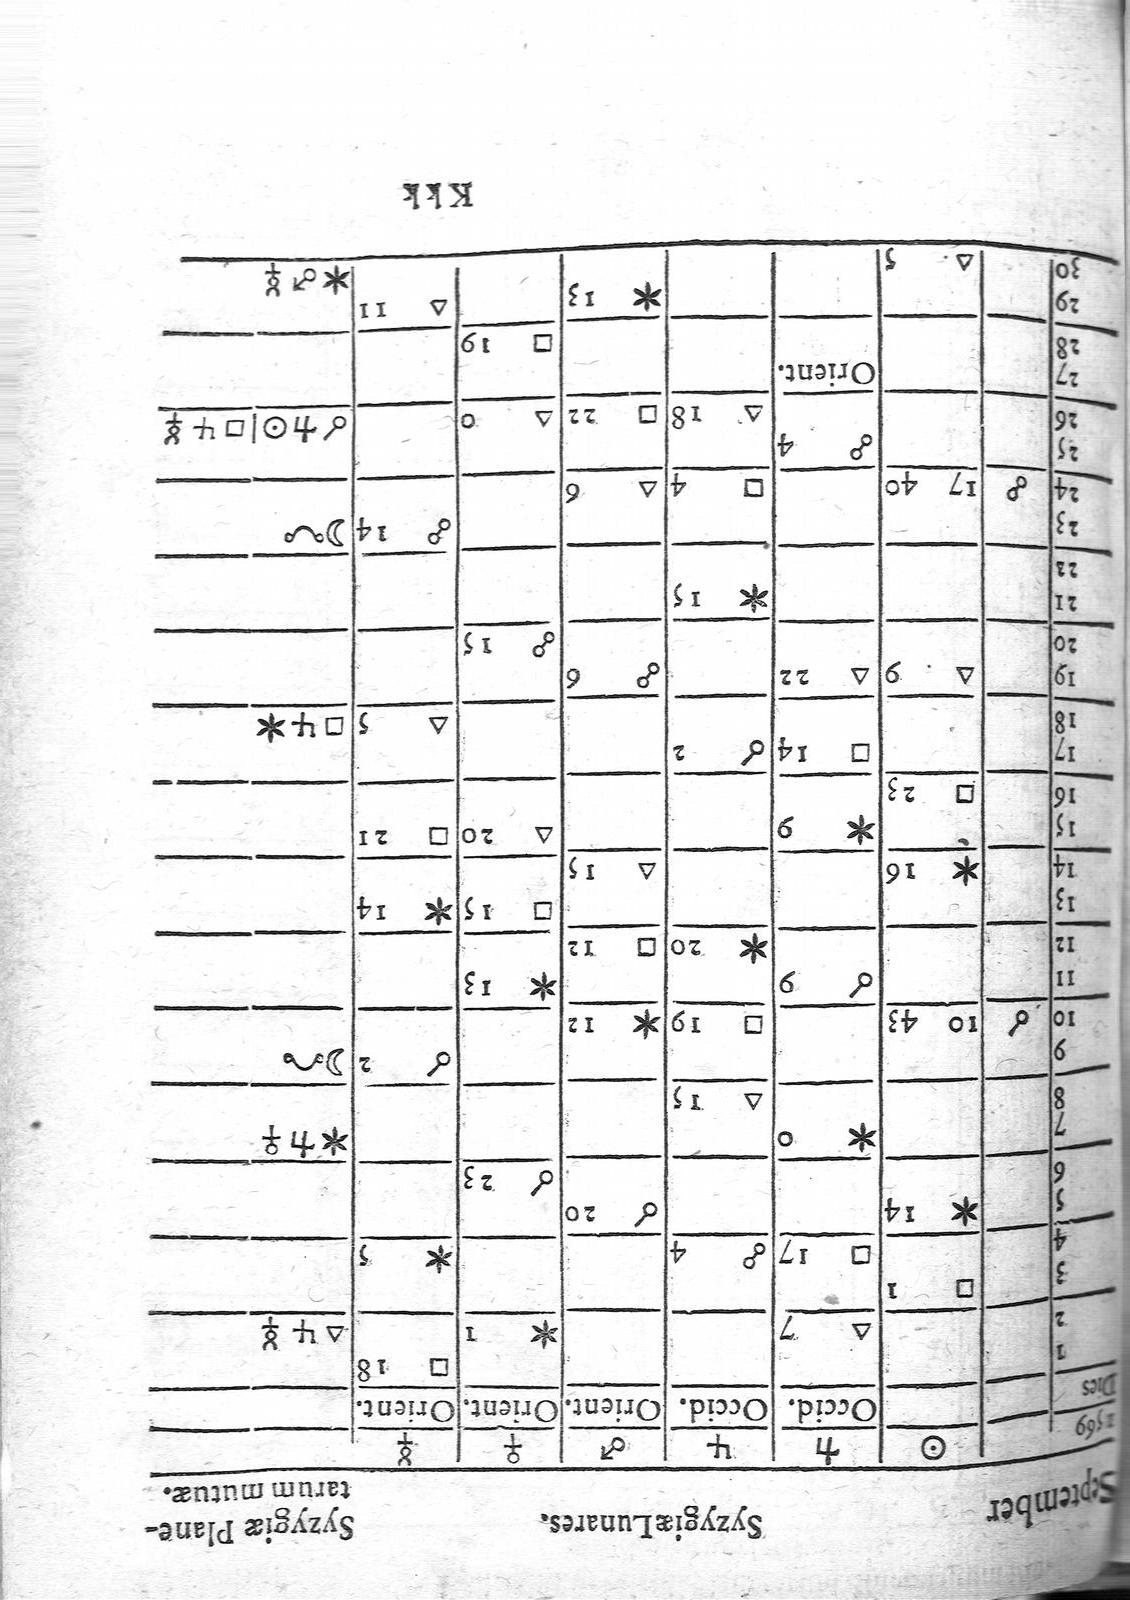 September Syzygiæ Lunares. Syzygiæ Plane-
tarum mutuæ.
1569 ☉ ♄ ♃ ♂ ♀ ☿
Dies Occid. Occid. Orient. Orient. Orient.
1 □ 18
2 △ 7 ✶ 1 △ ♃ ☿
3 □ 1
4 □ 17 ☍ 4 ✶ 5
5 ✶ 14 ☌ 20
6 ☌ 23
7 ✶ 0 ✶ ♄ ♀
8 △ 15
9 ☌ 2 ☽
10 ☌ 10 43 □ 19 ✶ 12
11 ☌ 9 ✶ 13
12 ✶ 20 □ 12
13 □ 15 ✶ 14
14 ✶ 16 △ 15
15 ✶ 9 △ 20 □ 21
16 □ 23
17 □ 14 ☌ 2
18 △ 5 □ ♃ ✶
19 △ 9 △ 22 ☍ 6
20 ☍ 15
21 ✶ 15
22
23 ☍ 14 ☽
24 ☍ 17 40 □ 4 △ 6
25 ☍ 4
26 △ 18 □ 22 △ 0 ☌ ♄ ☉ | □ ♃ ☿
27 Orient.
28 □ 19
29 ✶ 13 △ 11
30 △ 5 ✶ ♂ ☿
Kkk